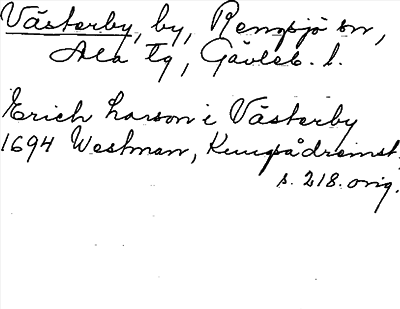 Västerby, by, Rengsjö sn,
Ala tg, Gävleb. l.
Erich Larson i Västerby
1694 Westman, Kungsådremst.
s. 218. orig.